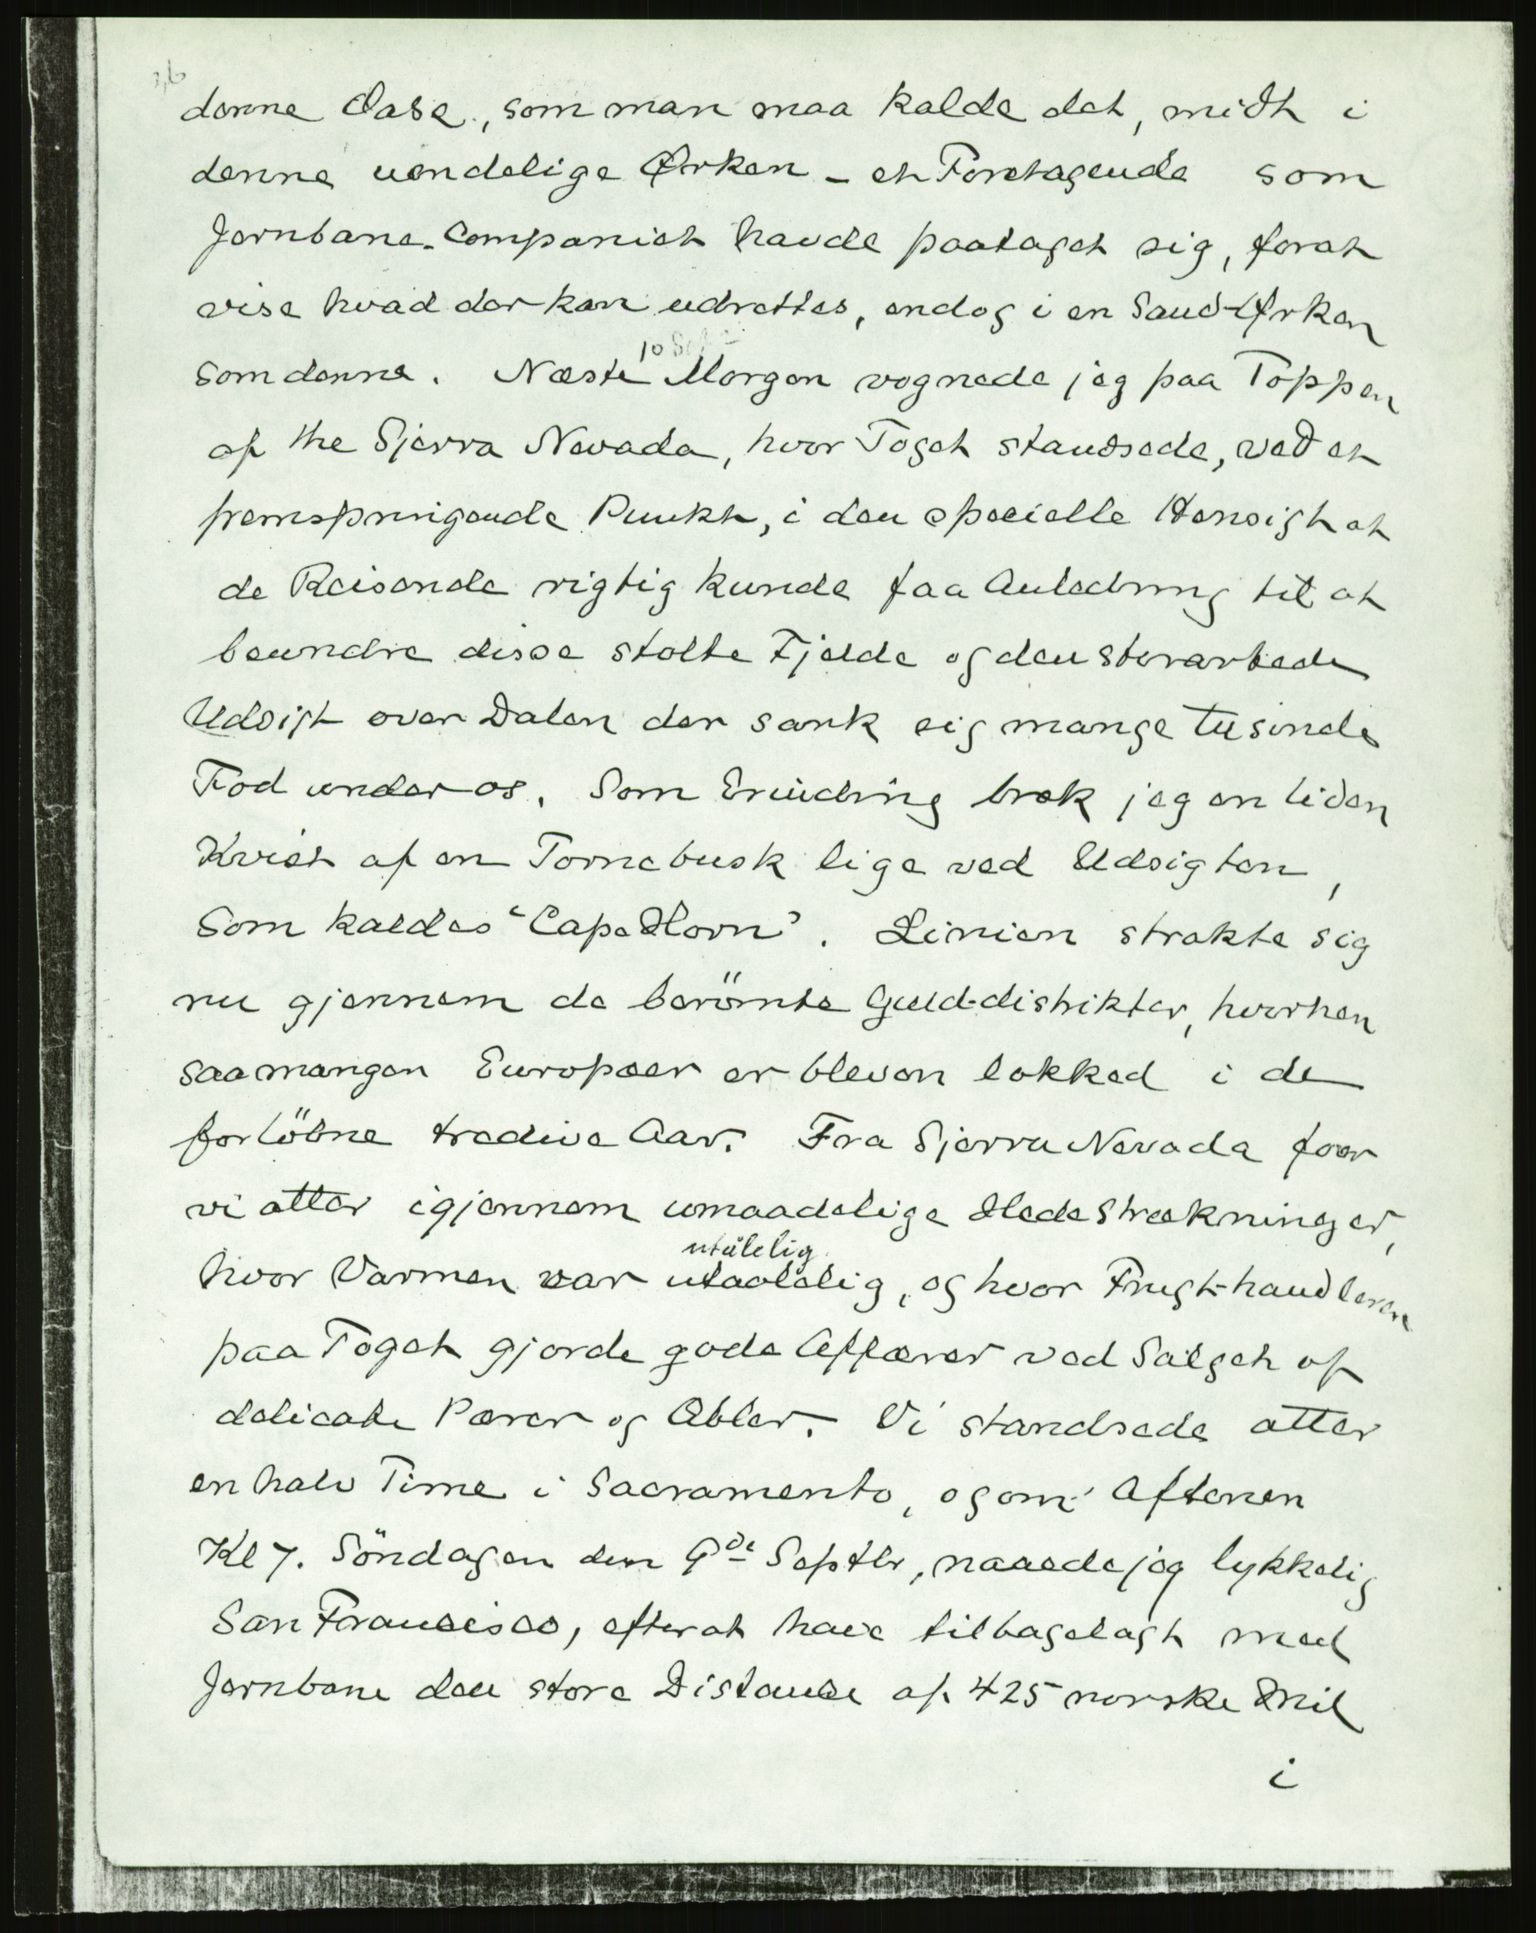 36
denne Oase, som man maa kalde det, midt i
denne uendelige Ørken - et Foretagende som
Jernbane-Companiet havde paataget sig, forat
vise hvad der kan udrettes, endog i en Sand-Ørken
10 Sept
som denne. Næste Morgen vognede jeg paa Toppen
af the Sjerra Nevada, hvor Toget standsede, ved et
fremspringende Punkt, i den specielle Hensigt at
de Reisende rigtig kunde faa Anledning til at
beundre disse stolte Fjelde og den storartede
Udsigt over Dalen der sank sig mange tusinde
Fod under os. Som Erindring brøk jeg en liden
Kvist af en Tornebusk lige ved Udsigten,
som kaldes 'Cape Horn'. Linien strakte sig
nu gjennem de berömte Guld-distrikter, hvorhen
saamangen Europæer er bleven lokked i de
forlöbne tredive Aar. Fra Sjerra Nevada foer
vi atter igjennem umaadelige Hedestrækninger,
utålelig
hvor Varmen var utaalelig, og hvor Frugt-handleren
paa Toget gjorde gode Affærer ved Salget af
delicate Pærer og Æbler. Vi standsede atter
en halv Time i Sacramento, og om Aftenen
Kl 7. Söndagen den 9de Septbr, naaede jeg lykkelig
San Francisco, efterat have tilbagelagt med
Jernbane den store Distance af 425 norske Mil
i